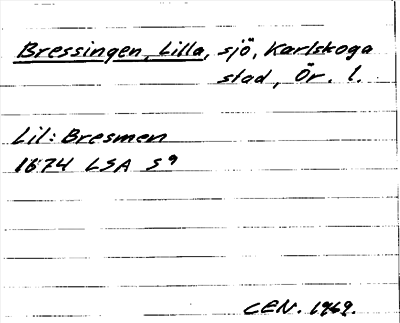 Bressingen, Lilla, sjö, Karlskoga
stad, Ör. l.
Lil: Bresmen
1674 LSA S9
CEN. 1969.